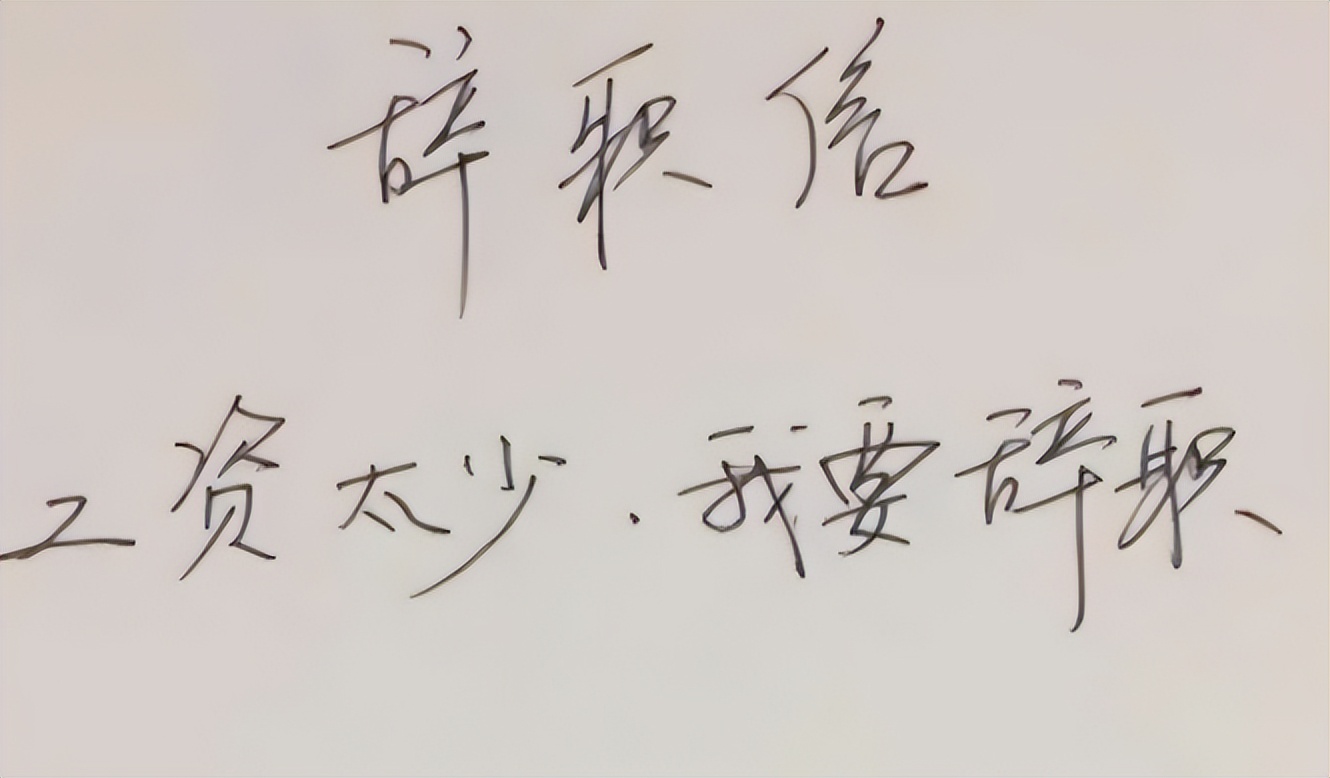 辞职信
工资太少.我要辞职